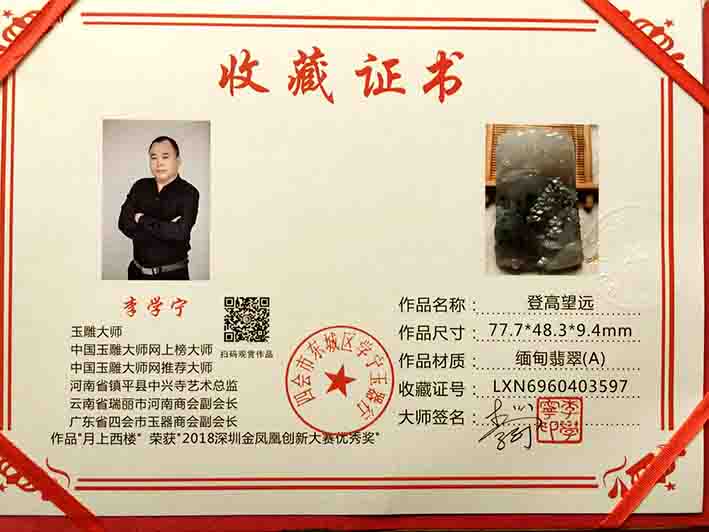 收藏证书
李学宁
扫码观赏作品
玉雕大师
中国玉雕大师网上榜大师
中国玉雕大师网推荐大师
河南省镇平县中兴寺艺术总监
云南省瑞丽市河南商会副会长
广东省四会市玉器商会副会长
作品"月上西楼" 荣获"2018深圳金凤凰创新大赛优秀奖"
四会市东城区学宁玉器行
作品名称: 登高望远
作品尺寸: 77.7*48.3*9.4mm
作品材质: 缅甸翡翠(A)
收藏证号: LXN6960403597
大师签名:
李學寧印